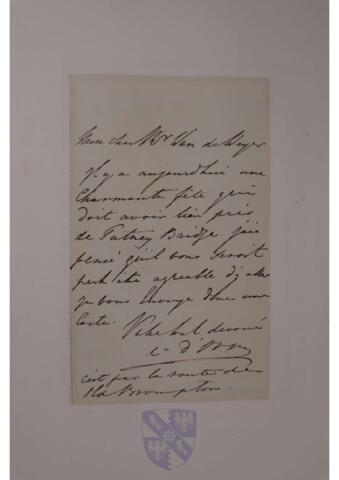 Mon cher Mr Van de Weyer
Il y a aujourd'hui une
Charmante fête qui
doit avoir lieu près
de Putney Bridge. j'ai
pensé qu'il vous seroit
peut être agréable d'y aller
je vous envoye donc une
Carte.
Votre devoué
c'est par la route de
Old Brompton.